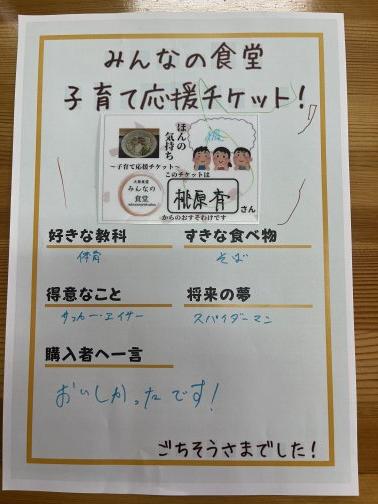 みんなの食堂
子育て応援チケット！
ほんの気持ち
～子育て応援チケット～
このチケットは
みんなの
食堂
桃原有 さん
からのおすそわけです
好きな教科
体育
すきな食べ物
そば
得意なこと
サッカー・エイサー
将来の夢
スパイダーマン
購入者へ一言
おいしかったです！
ごちそうさまでした！